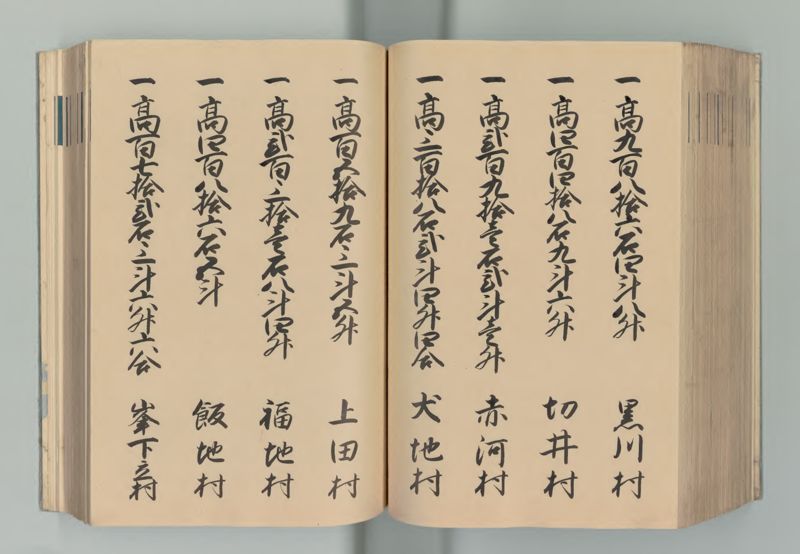 一高九百八拾六石四斗八升 黒川村
一高四百四拾八石九斗六升 切井村
一高弐百九拾壱石弐斗壱升 赤河村
一高三百拾八石弐斗四升四合 犬地村
一高百五拾九石三斗五升 上田村
一高弐百三拾壱石八斗四升 福地村
一高四百八拾六石五斗 飯地村
一高百七拾弐石三斗六升六合 峯下立村